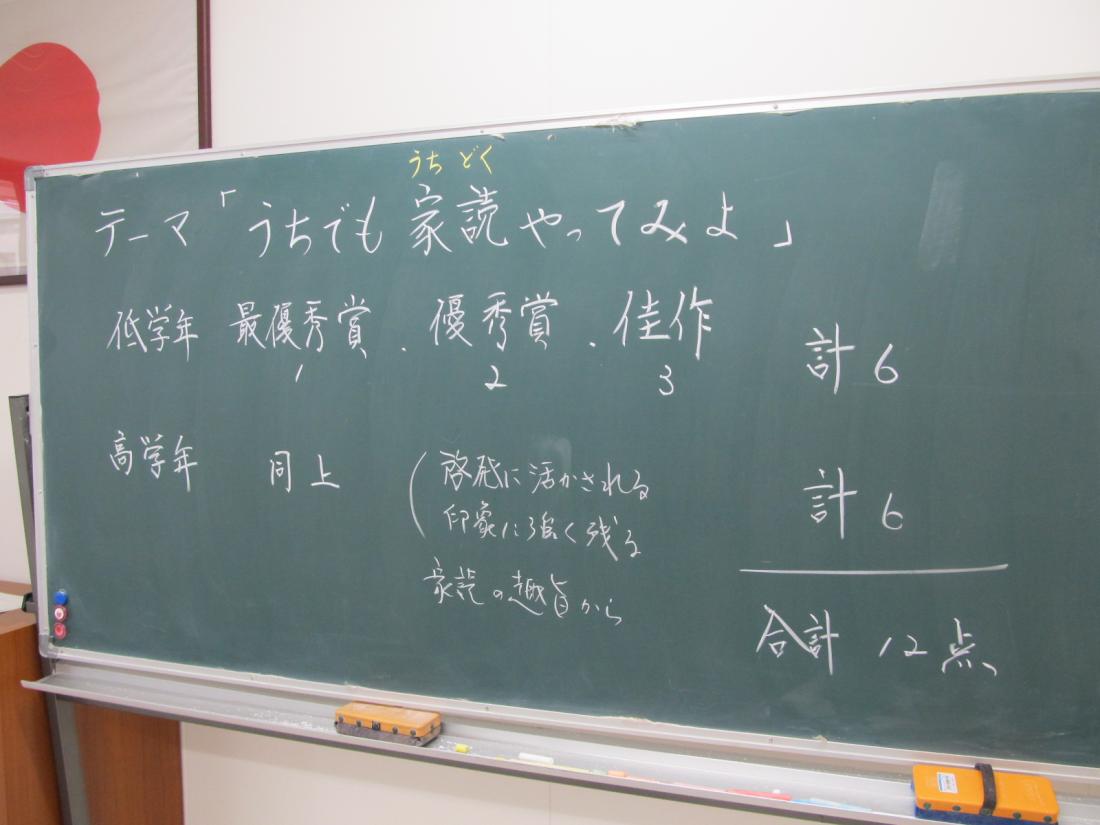 うちどく
テーマ「うちでも家読やってみよ」
低学年 最優秀賞、・優秀賞・佳作 計6
1 2 3
高学年 同上 計6
(啓発に活かされる
印象に強く残る
家読の趣旨から
合計 12点